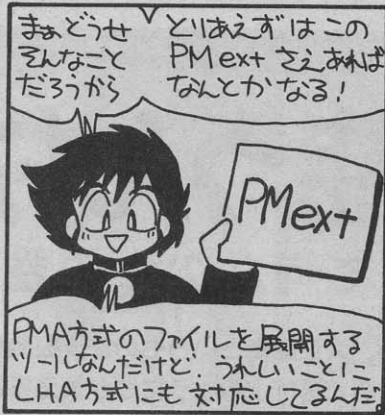 まぁどうせ
そんなこと
だろうから
とりあえずはこの
PMext さえあれば
なんとかなる！
PMext
PMA方式のファイルを展開する
ツールなんだけど、うれしいことに
LHA方式にも対応してるんだ。